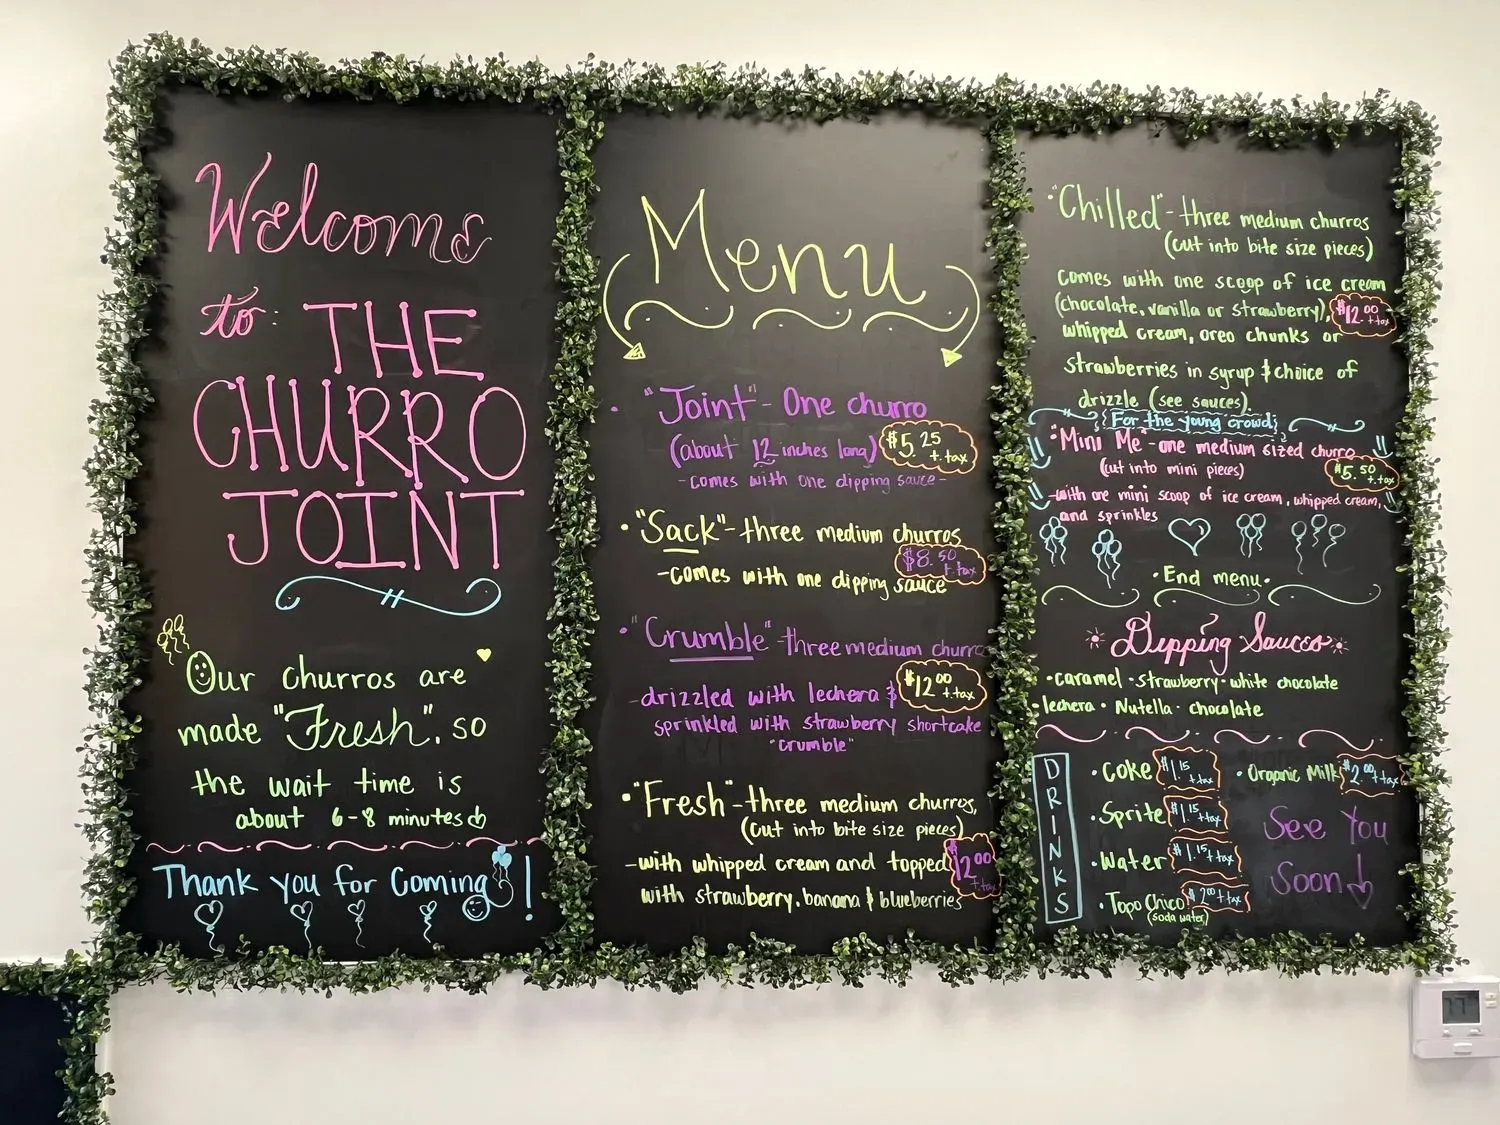 Welcome
to: THE
CHURRO
JOINT
Our churros are
made "Fresh", so
the wait time is
about 6-8 minutes
Thank you for Coming!
Menu
"Joint" - One churro
(about 12 inches long) $5.25 + tax
- comes with one dipping sauce -
"Sack" - three medium churros
$8.50 + tax
- comes with one dipping sauce
"Crumble" - three medium churro
- drizzled with lechera & $12.00 + tax
sprinkled with strawberry shortcake
"crumble"
"Fresh" - three medium churros,
(cut into bite size pieces)
- with whipped cream and topped $12.00 + tax
with strawberry, banana & blueberries
"Chilled" - three medium churros
(cut into bite size pieces)
comes with one scoop of ice cream
(chocolate, vanilla or strawberry), $12.00 + tax
whipped cream, oreo chunks or
strawberries in syrup & choice of
drizzle (see sauces)
For the young crowd
"Mini Me" - one medium sized churro
(cut into mini pieces) $5.50 + tax
- with one mini scoop of ice cream, whipped cream,
and sprinkles
• End menu •
Dipping Sauces
• caramel • strawberry • white chocolate
• lechera • Nutella • chocolate
DRINKS
• Coke $1.15 + tax
• Organic Milk $2.00 + tax
• Sprite $1.15 + tax
• Water $1.15 + tax
• Topo Chico $2.00 + tax
(soda water)
See You
Soon
77